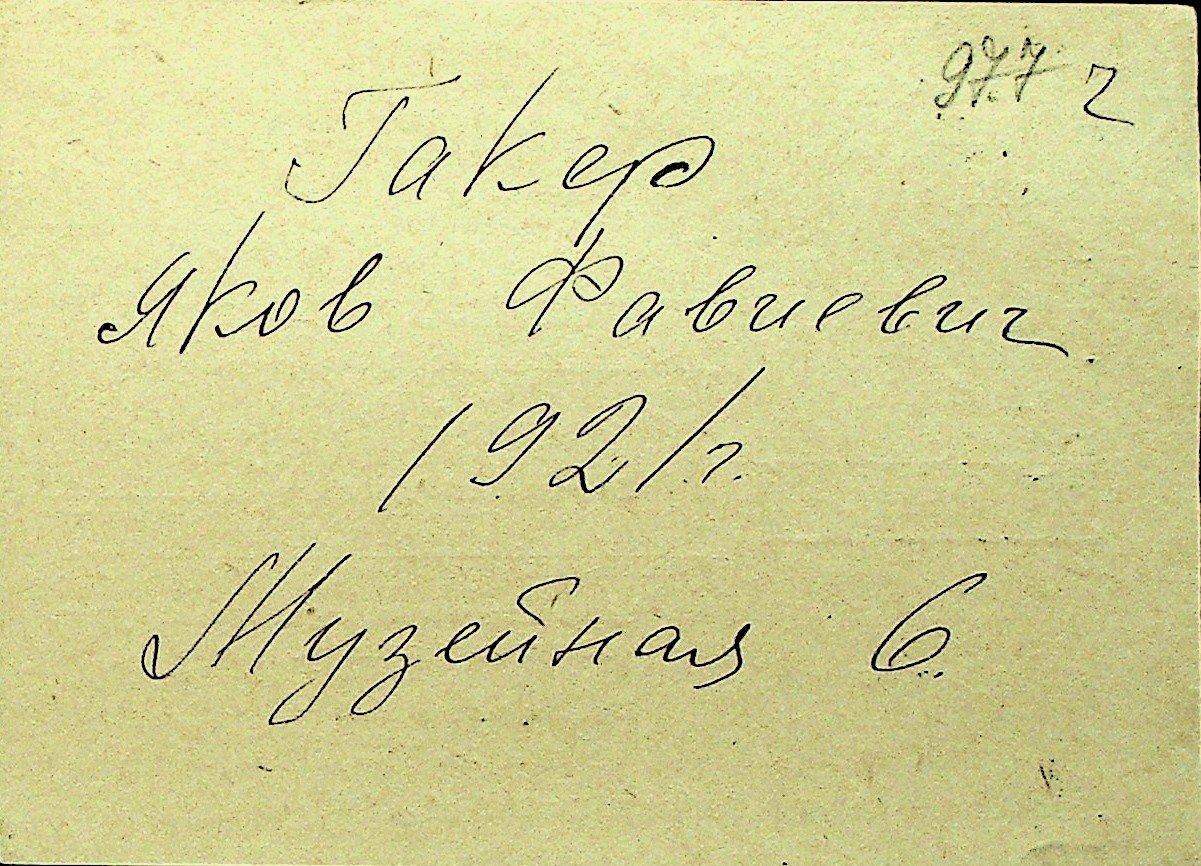 977 г
Гакер
Яков Фавиевич.
1921г.
Музейная 6